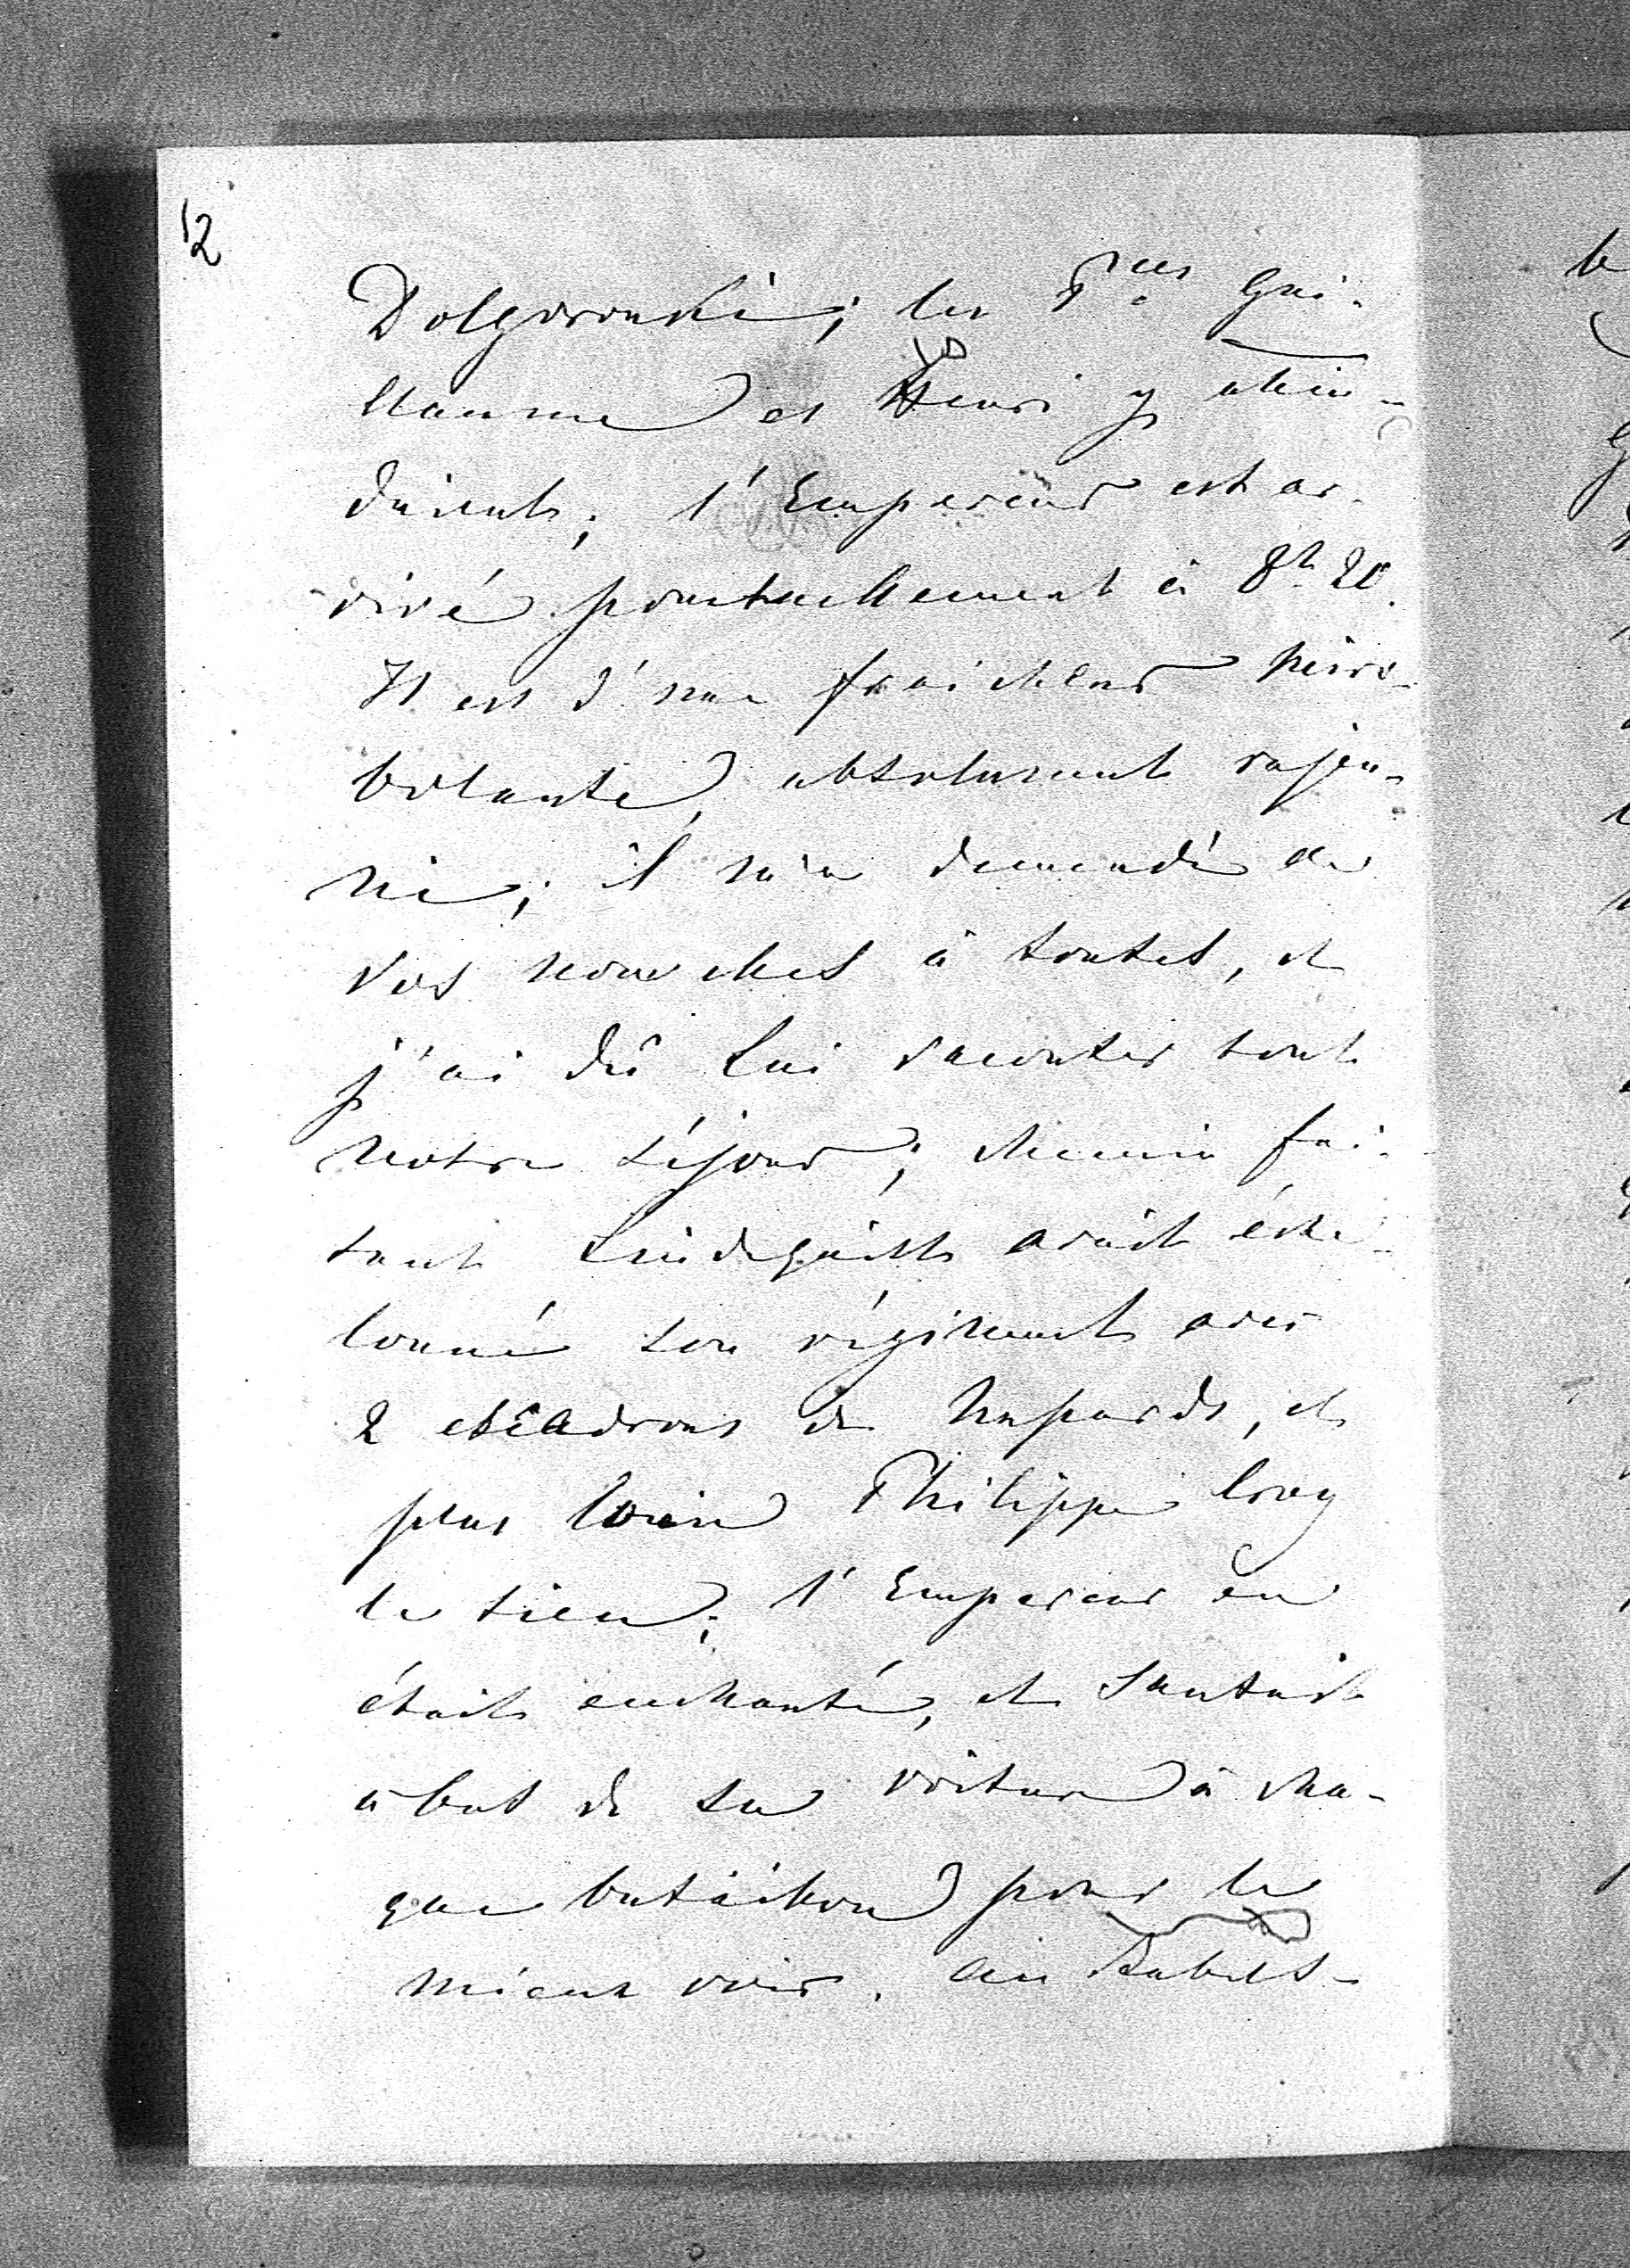 12
Dolgorouki; les Pces Gui-
llaume et Henri y atten-
daient; l'Empereur est ar-
rivé ponctuellement à 8h 20.
Il est d'une fraicheur miro-
bolante, absolument rajeu-
ni; il m'a demandé de
vos nouvelles à toutes, et
j'ai dû lui raconter tout
notre séjour; chemin fai-
sant Lindequist avait éche-
lonné son régiment avec
2 escadrons de hussards, et
plus loin Philippe Croy
le sien; l'Empereur en
était enchanté, et sautait
à bas de sa voiture à cha-
que bataillon pour le
mieux voir. Au